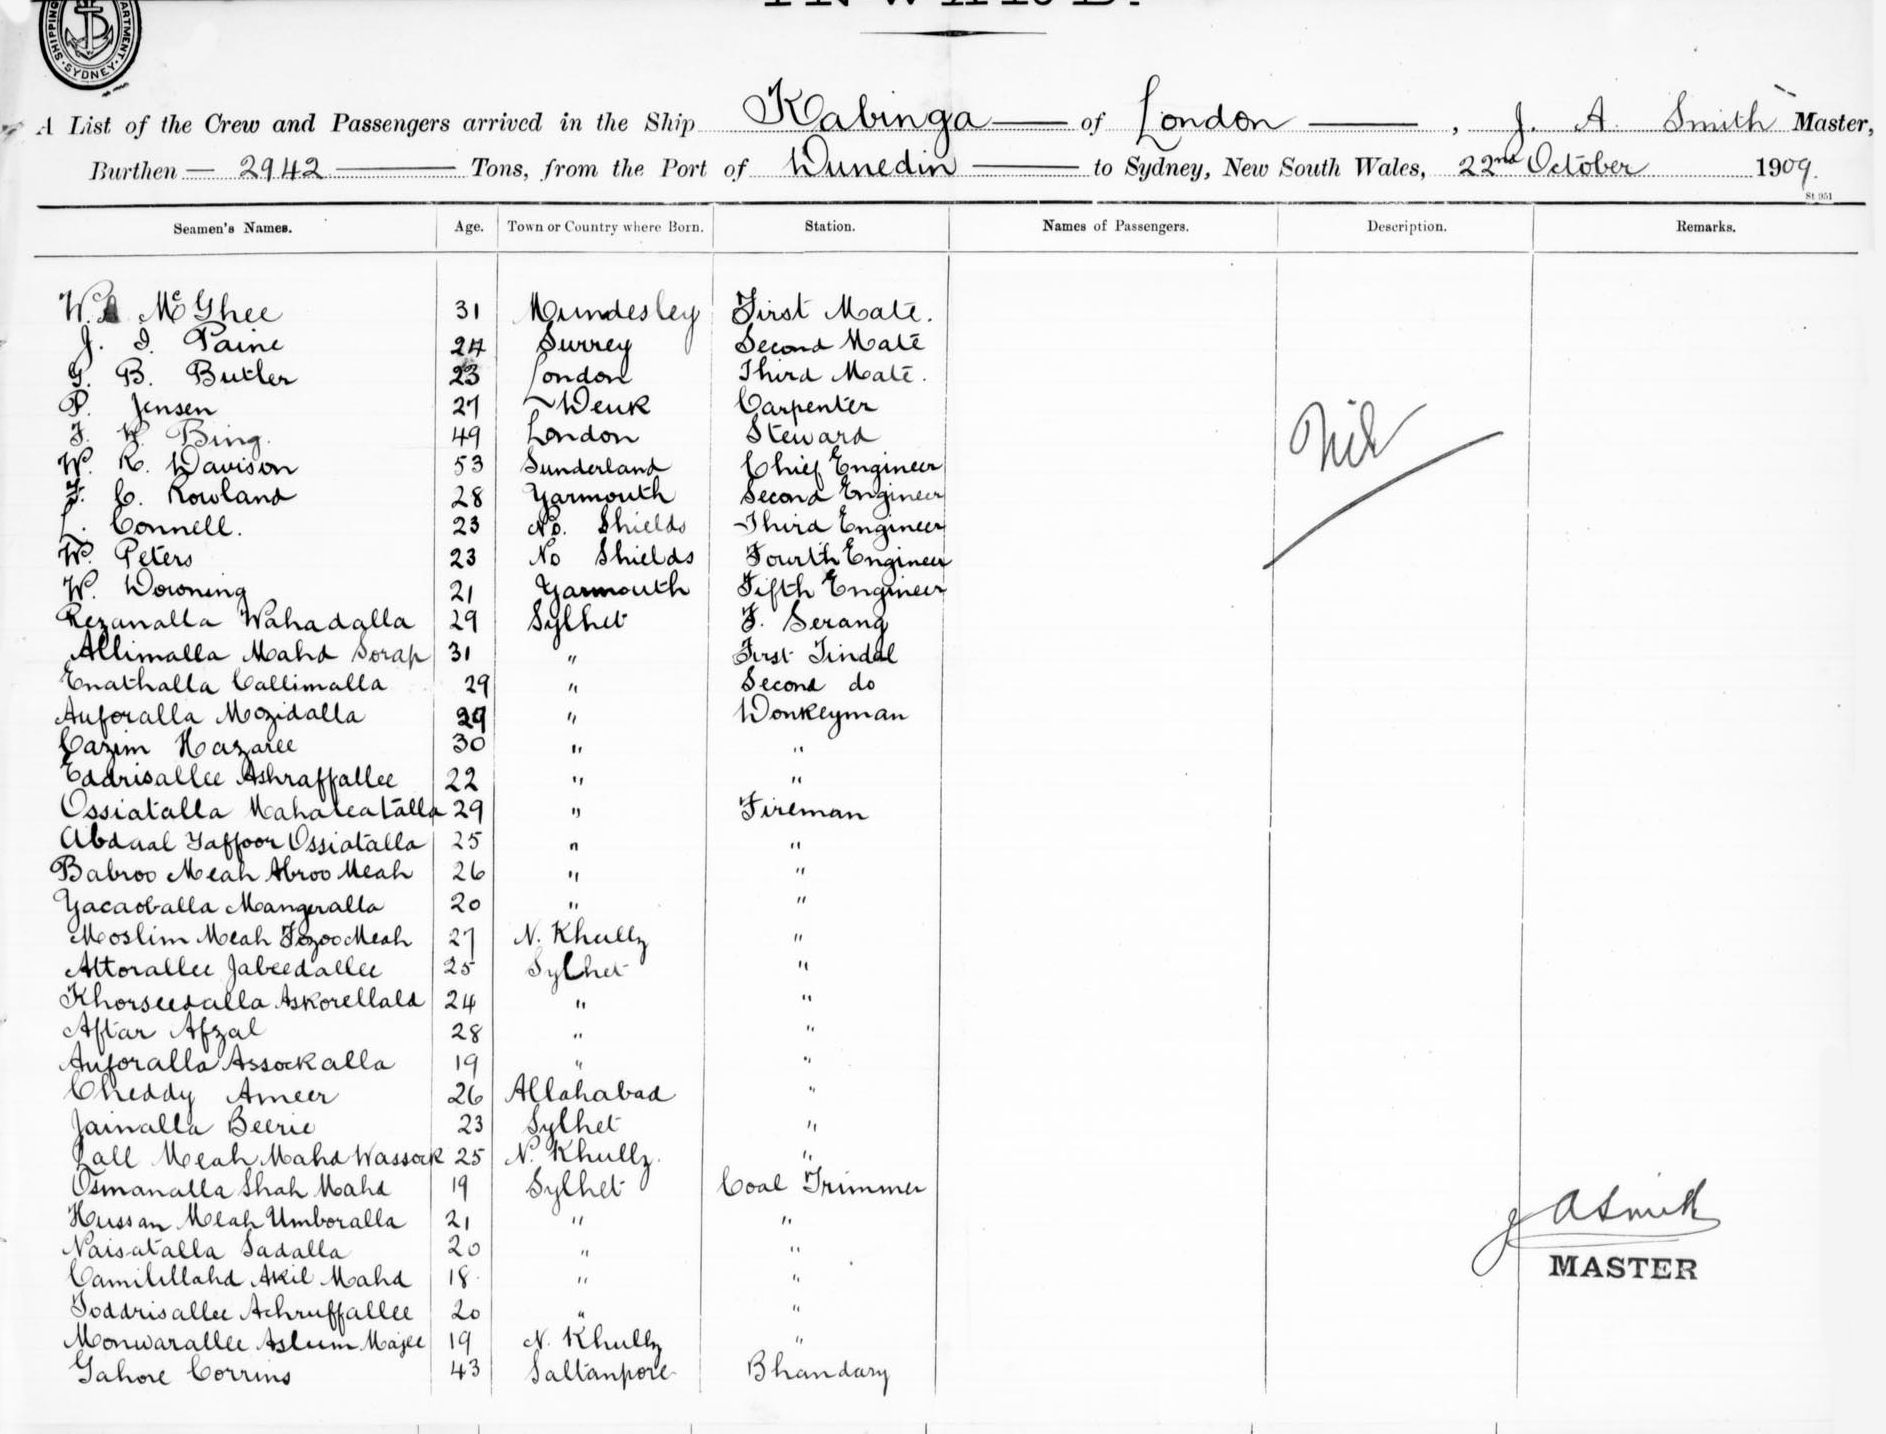 INWARD.
SHIPPING DEPARTMENT SYDNEY
A List of the Crew and Passengers arrived in the Ship Kabinga of London, J. A. Smith Master,
Burthen 2942 Tons, from the Port of Dunedin to Sydney, New South Wales, 22nd October 1909.
St 951
Seamen's Names. Age. Town or Country where Born. Station. Names of Passengers. Description. Remarks.
W. McGhee 31 Mundesley First Mate.
J. I. Paine 24 Surrey Second Mate
G. B. Butler 23 London Third Mate.
P. Jensen 27 Denk Carpenter
F. H. Bing. 49 London Steward
W. R. Davison 53 Sunderland Chief Engineer
F. C. Rowland 28 Yarmouth Second Engineer
L. Connell. 23 No. Shields Third Engineer
W. Peters 23 No Shields Fourth Engineer
W. Downing 21 Yarmouth Fifth Engineer
Rezanalla Wahadalla 29 Sylhet F. Serang
Allimalla Mahd Sorap 31 " First Tindal
Enathalla Callimalla 29 " Second do
Auforalla Mozidalla 29 " Donkeyman
Cazim Hazaree 30 " "
Eddrisallee Ashraffallee 22 " "
Ossiatalla Mahaleatalla 29 " Fireman
Abdaal Gaffoor Ossiatalla 25 " "
Babroo Meah Abroo Meah 26 " "
Yacaoballa Mangeralla 20 " "
Moslim Meah Fozoo Meah 27 N. Khully "
Attorallee Jabeedallee 25 Sylhet "
Khorseedalla Askorellald 24 " "
Aftar Afzal 28 " "
Auforalla Assockalla 19 " "
Cheddy Ameer 26 Allahabad "
Jainalla Beerie 23 Sylhet "
Lall Meah Mahd Wassock 25 N. Khully. "
Osmanalla Shah Mahd 19 Sylhet Coal Trimmer
Hussan Meah Umboralla 21 " "
Naisatalla Sadalla 20 " "
Camilillahd Akil Mahd 18 " "
Toddrisallee Achruffallee 20 " "
Monwarallee Aslum Majee 19 N. Khully "
Gahore Corrins 43 Saltanpore Bhandary
Nil
J A Smith
MASTER